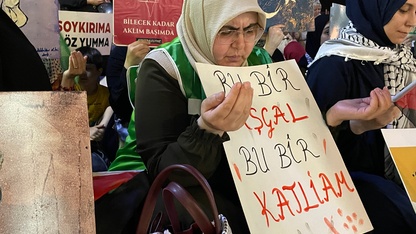 SOYKIRIMA
GÖZ YUMMA
BİLECEK KADAR
AKLIM BAŞIMDA
BU BİR
İŞGAL
BU BİR
KATLİAM